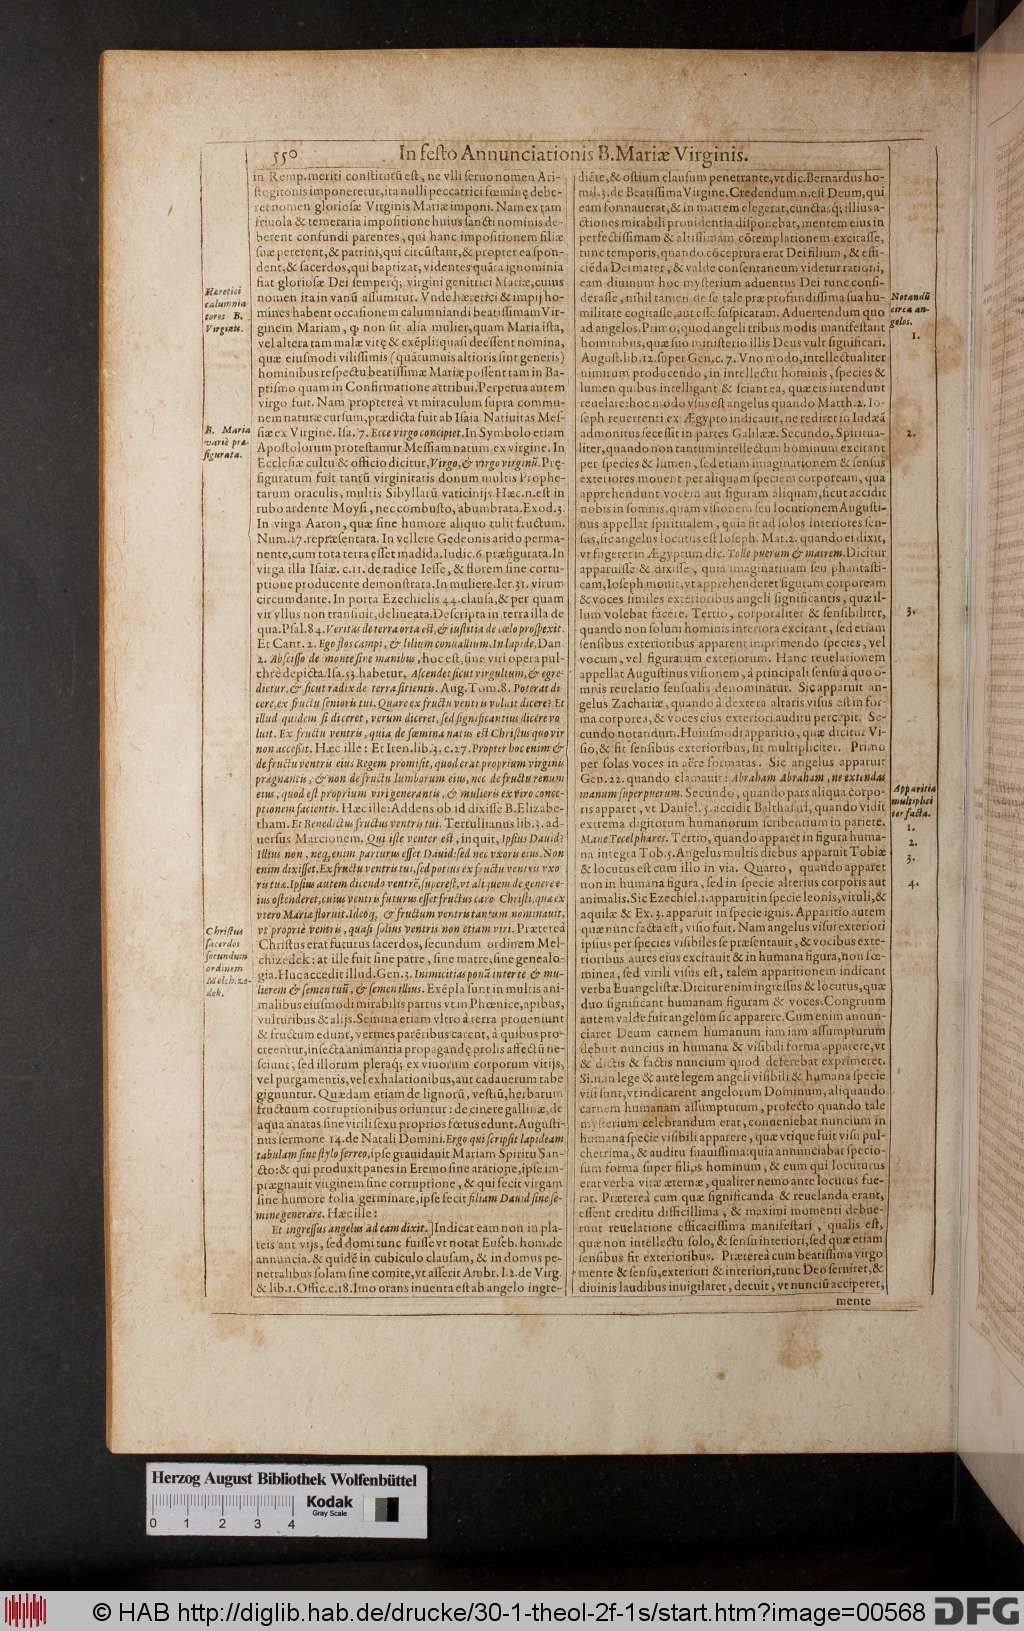 550
In festo Annunciationis B. Mariæ Virginis.
in Remp. meriti constitutū est, ne vlli seruo nomen Ari-
stogitonis imponeretur, ita nulli peccatrici fœminę debe-
ret nomen gloriosæ Virginis Mariæ imponi. Nam ex tam
friuola & temeraria impositione huius sancti nominis de-
berent confundi parentes, qui hanc impositionem filiæ
suæ peterent, & patrini, qui circūstant, & propter ea spon-
dent, & sacerdos, qui baptizat, videntes quāta ignominia
fiat gloriosæ Dei semperq; virgini genitrici Mariæ, cuius
nomen ita in vanū assumitur. Vnde hæretici & impij ho-
mines habent occasionem calumniandi beatissimam Vir-
ginem Mariam, ꝙ non sit alia mulier, quam Maria ista,
vel altera tam malæ vitę & exēpli: quasi deessent nomina,
quæ eiusmodi vilissimis (quātumuis altioris sint generis)
hominibus respectu beatissimæ Mariæ possent tam in Ba-
ptismo quam in Confirmatione attribui. Perpetua autem
virgo fuit. Nam propterea vt miraculum supra commu-
nem naturæ cursum, prædicta fuit ab Isaia Natiuitas Mes-
siæ ex Virgine. Isa. 7. Ecce virgo concipiet. In Symbolo etiam
Apostolorum protestamur Messiam natum ex virgine. In
Ecclesiæ cultu & officio dicitur, Virgo, & virgo virginū. Prę-
figuratum fuit tantū virginitatis donum multis Prophe-
tarum oraculis, multis Sibyllarū vaticinijs. Hæc. n. est in
rubo ardente Moysi, nec combusto, abumbrata. Exod. 3.
In virga Aaron, quæ sine humore aliquo tulit fructum.
Num. 17. repræsentata. In vellere Gedeonis arido perma-
nente, cum tota terra esset madida. Iudic. 6. præfigurata. In
virga illa Isaiæ. c. 11. de radice Iesse, & florem sine corru-
ptione producente demonstrata. In muliere. Ier. 31. virum
circumdante. In porta Ezechielis 44. clausa, & per quam
vir vllus non transiuit, delineata. Descripta in terra illa de
qua. Psal. 84. Veritas de terra orta est, & iustitia de cœlo prospexit.
Et Cant. 2. Ego flos campi, & lilium conuallium. In lapide, Dan.
2. Abscisso de monte sine manibus, hoc est, sine viri opera pul-
chrè depicta. Isa. 53. habetur, Ascendet sicut virgultum, & egre-
dietur, & sicut radix de terra sitientis. Aug. Tom. 8. Poterat di
cere, ex fructu senioris tui. Quare ex fructu ventris voluit dicere? Et
illud quidem si diceret, verum diceret, sed significantius dicere vo
luit. Ex fructu ventris, quia de fœmina natus est Christus quo vir
non accessit. Hæc ille: Et Iren. lib. 3. c. 27. Propter hoc enim &
de fructu ventris eius Regem promisit, quod erat proprium virginis
prægnantis, & non de fructu lumborum eius, nec de fructu renum
eius, quod est proprium viri generantis, & mulieris ex viro conce-
ptionem facientis. Hæc ille: Addens ob id dixisse B. Elizabe-
tham. Et Benedictus fructus ventris tui. Tertullianus lib. 3. ad-
uersus Marcionem. Qui iste venter est, inquit, Ipsius Dauid?
Illius non, neq; enim parturus esset Dauid: sed nec vxoris eius. Non
enim dixisset. Ex fructu ventris tui, sed potius ex fructu ventris vxo
ris tuæ. Ipsius autem dicendo ventrē, superest, vt aliquem de genere e-
ius ostenderet, cuius ventris futurus esset fructus caro Christi, quæ ex
vtero Mariæ floruit. Ideoq; & fructum ventris tantum nominauit,
vt propriè ventris, quasi solius ventris non etiam viri. Præterea
Christus erat futurus sacerdos, secundum ordinem Mel-
chizedek: at ille fuit sine patre, sine matre, sine genealo-
gia. Huc accedit illud. Gen. 3. Inimicitias ponā inter te & mu-
lierem & semen tuū, & semen illius. Exēpla sunt in multis ani-
malibus eiusmodi mirabilis partus vt in Phœnice, apibus,
vulturibus & alijs. Semina etiam vltro à terra proueniunt
& fructum edunt, vermes parētibus carent, à quibus pro-
creentur, insecta animantia propagandę prolis affectū ne-
sciunt, sed illorum pleraq; ex viuorum corporum vitijs,
vel purgamentis, vel exhalationibus, aut cadauerum tabe
gignuntur. Quædam etiam de lignorū, vestiū, herbarum
fructuum corruptionibus oriuntur: de cinere gallinæ, de
aqua anatas sine virili sexu proprios fœtus edunt. Augusti-
nus sermone 14. de Natali Domini. Ergo qui scripsit lapideam
tabulam sine stylo ferreo, ipse grauidauit Mariam Spiritu San-
cto: & qui produxit panes in Eremo sine aratione, ipse im-
prægnauit virginem sine corruptione, & qui fecit virgam
sine humore folia germinare, ipse fecit filiam Dauid sine se-
mine generare. Hæc ille:
Et ingressus angelus ad eam dixit.] Indicat eam non in pla-
teis aut vijs, sed domi tunc fuisse vt notat Euseb. hom. de
annuncia. & quidē in cubiculo clausam, & in domus pe-
netralibus solam sine comite, vt asserit Ambr. l. 2. de Virg.
& lib. 1. Offic. c. 18. Imo orans inuenta est ab angelo ingre-
Hæretici
calumnia
tores B.
Virginis.
B. Maria
variè præ
figurata.
Christus
sacerdos
secundum
ordinem
Melchize-
dek.
diēte, & ostium clausum penetrante, vt dic. Bernardus ho-
mil. 3. de Beatissima Virgine. Credendum. n. est Deum, qui
eam formauerat, & in matrem elegerat, cunctasq; illius a-
ctiones mirabili prouidentia disponebat, mentem eius in
perfectissimam & altissimam cōtemplationem excitasse,
tunc temporis, quando cōceptura erat Dei filium, & effi-
ciēda Dei mater, & valde consentaneum videtur rationi,
eam diuinum hoc mysterium aduentus Dei tunc consi-
derasse, nihil tamen de se tale præ profundissima sua hu-
militate cogitasse, aut esse suspicatam. Aduertendum quo
ad angelos. Primo, quod angeli tribus modis manifestant
hominibus, quæ suo ministerio illis Deus vult significari.
August. lib. 12. super Gen. c. 7. Vno modo, intellectualiter
nimirum producendo, in intellectu hominis, species &
lumen quibus intelligant & sciant ea, quæ eis intendunt
reuelare: hoc modo vsus est angelus quando Matth. 2. Io-
seph reuertenti ex Ægypto indicauit, ne rediret in Iudæā
admonitus secessit in partes Galilææ. Secundo, Spiritua-
liter, quando non tantum intellectum hominum excitant
per species & lumen, sed etiam imaginationem & sensus
exteriores mouent per aliquam speciem corpoream, qua
apprehendunt vocem aut figuram aliquam, sicut accidit
nobis in somnis, quam visionem seu locutionem Augusti-
nus appellat spiritualem, quia fit ad solos interiores sen-
sus, sic angelus locutus est Ioseph. Mat. 2. quando ei dixit,
vt fugeret in Ægyptum dic. Tolle puerum & matrem. Dicitur
apparuisse & dixisse, quia imaginatiuam seu phantasti-
cam, Ioseph mouit, vt apprehenderet figuram corpoream
& voces similes exterioribus angeli significantis, quæ il-
lum volebat facere. Tertio, corporaliter & sensibiliter,
quando non solum hominis interiora excitant, sed etiam
sensibus exterioribus apparent imprimendo species, vel
vocum, vel figuratum exteriorum. Hanc reuelationem
appellat Augustinus visionem, à principali sensu à quo o-
mnis reuelatio sensualis denominatur. Sic apparuit an-
gelus Zachariæ, quando à dextera altaris visus est in for-
ma corporea, & voces eius exteriori auditu percepit. Se-
cundo notandum. Huiusmodi apparitio, quæ dicitur Vi-
sio, & fit sensibus exterioribus, fit multipliciter. Primo
per solas voces in aëre formatas. Sic angelus apparuit
Gen. 22. quando clamauit: Abraham Abraham, ne extendas
manum super puerum. Secundo, quando pars aliqua corpo-
ris apparet, vt Daniel. 5. accidit Balthasari, quando vidit
extrema digitorum humanorum scribentium in pariete.
Mane Tecel phares. Tertio, quando apparet in figura huma-
na integra Tob. 5. Angelus multis diebus apparuit Tobiæ
& locutus est cum illo in via. Quarto, quando apparet
non in humana figura, sed in specie alterius corporis aut
animalis. Sic Ezechiel. 1. apparuit in specie leonis, vituli, &
aquilæ & Ex. 3. apparuit in specie ignis. Apparitio autem
quæ nunc facta est, visio fuit. Nam angelus visui exteriori
ipsius per species visibiles se præsentauit, & vocibus exte-
rioribus aures eius excitauit & in humana figura, non fœ-
minea, sed virili visus est, talem apparitionem indicant
verba Euangelistæ. Dicitur enim ingressus & locutus, quæ
duo significant humanam figuram & voces. Congruum
autem valde fuit angelum sic apparere. Cum enim annun-
ciaret Deum carnem humanum iam iam assumpturum
debuit nuncius in humana & visibili forma apparere, vt
& dictis & factis nuncium quod deferebat exprimeret.
Si. n. in lege & ante legem angeli visibili & humana specie
visi sunt, vt indicarent angelorum Dominum, aliquando
carnem humanam assumpturum, profecto quando tale
mysterium celebrandum erat, conueniebat nuncium in
humana specie visibili apparere, quæ vtique fuit visu pul-
cherrima, & auditu suauissima: quia annunciabat specio-
sum forma super filios hominum, & eum qui locuturus
erat verba vitæ æternæ, qualiter nemo ante locutus fue-
rat. Præterea cum quæ significanda & reuelanda erant,
essent creditu difficillima, & maximi momenti debue-
runt reuelatione efficacissima manifestari, qualis est,
quæ non intellectu solo, & sensu interiori, sed quæ etiam
sensibus fit exterioribus. Præterea cum beatissima virgo
mente & sensu, exteriori & interiori, tunc Deo seruiret, &
diuinis laudibus inuigilaret, decuit, vt nunciū acciperet,
mente
Notandū
circa an-
gelos.
1.
2.
3.
Apparitio
multiplici
ter facta.
1.
2.
3.
4.
Herzog August Bibliothek Wolfenbüttel
Kodak
Gray Scale
0 1 2 3 4
© HAB http://diglib.hab.de/drucke/30-1-theol-2f-1s/start.htm?image=00568
DFG